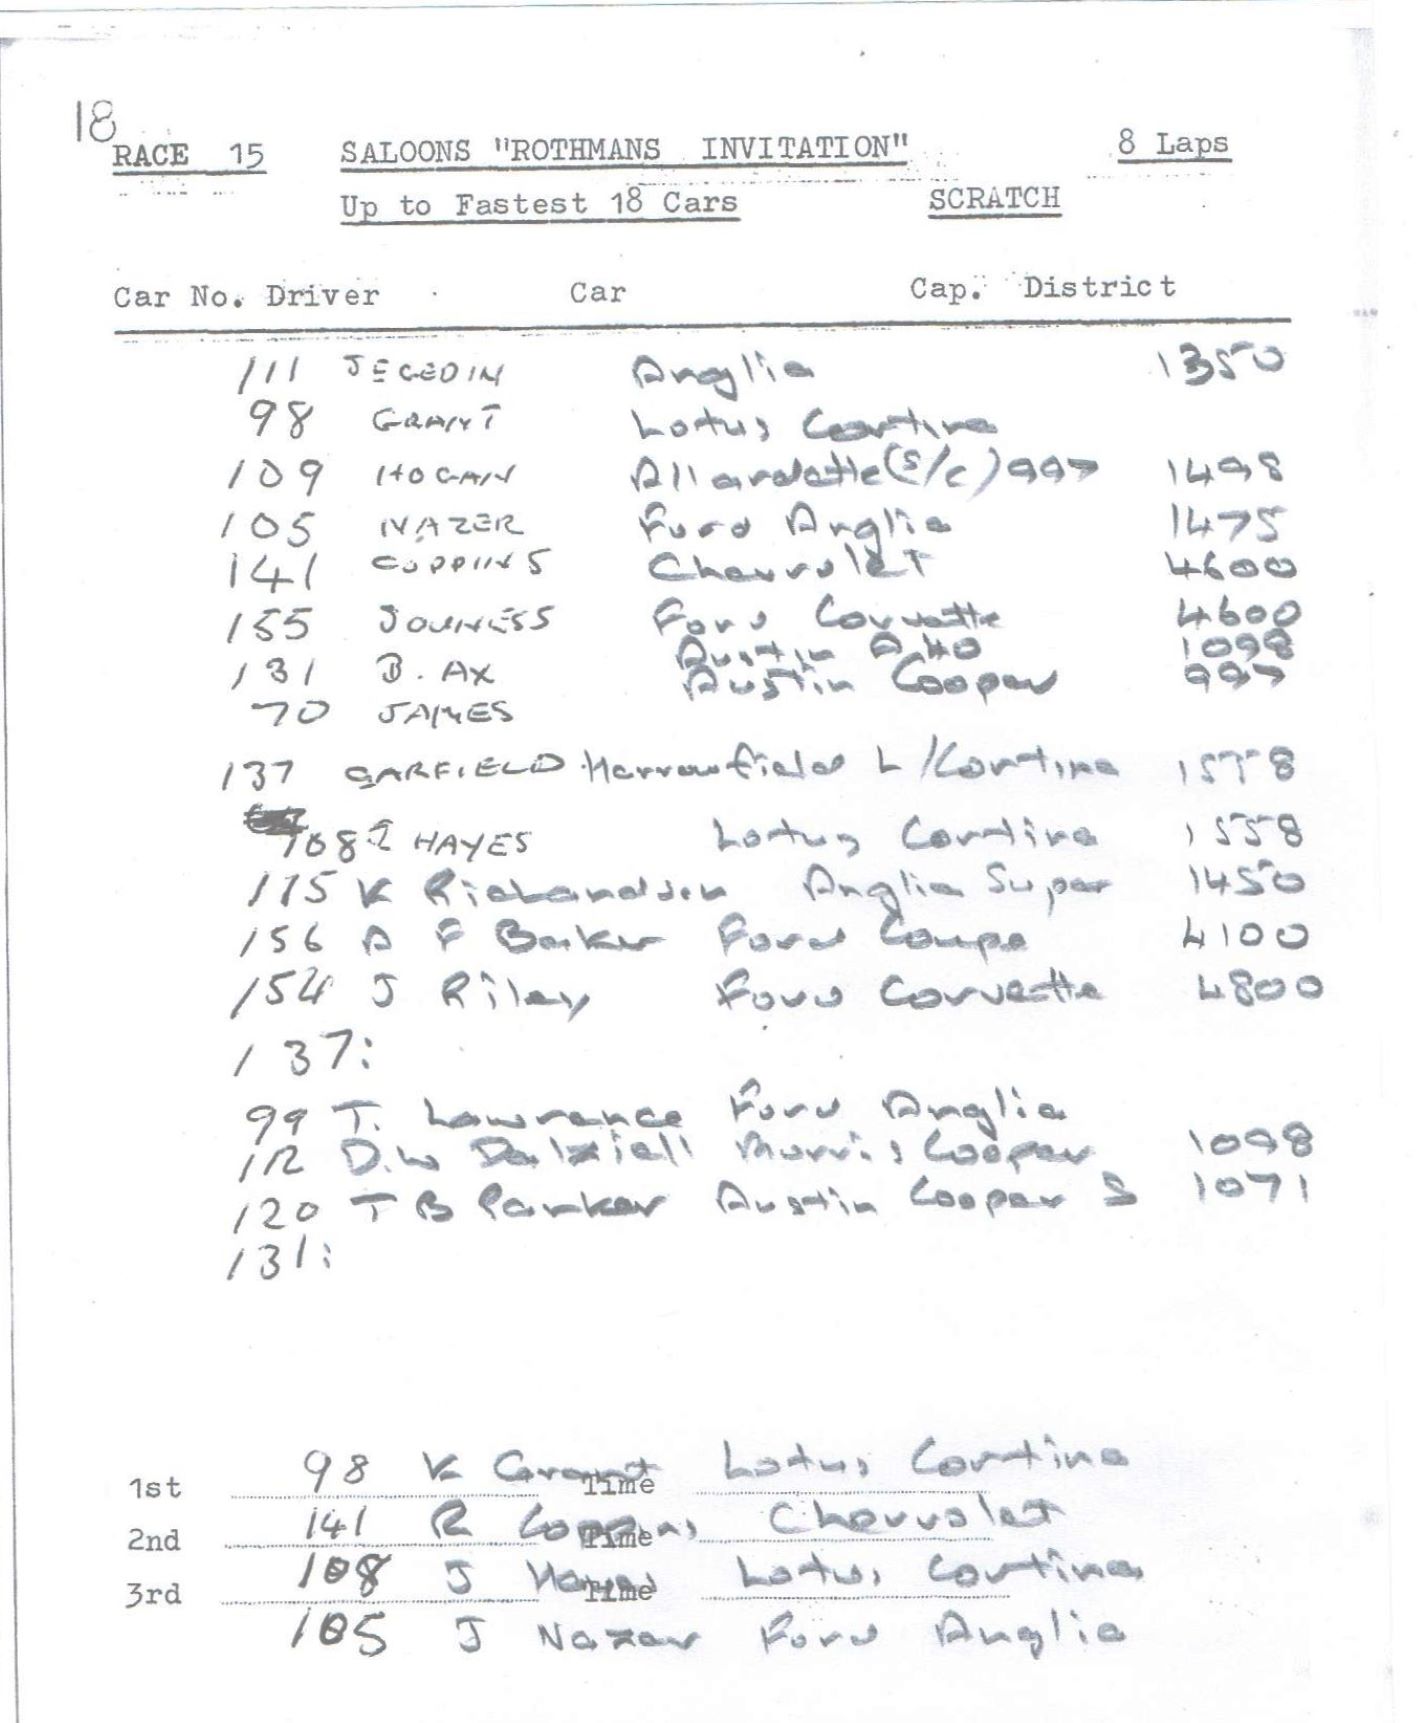 18
RACE 15 SALOONS "ROTHMANS INVITATION" 8 Laps
Up to Fastest 18 Cars SCRATCH
Car No. Driver Car Cap. District
111 JEGEDIN Anglia 1350
98 GRANT Lotus Cortina
109 HOGAN Allardette (S/C) 997 1498
105 NAZER Ford Anglia 1475
141 COPPINS Chevrolet 4600
155 JOUNESS Ford Corvette 4600
Austin A.40 1098
131 B. AX Austin Cooper 997
70 JAMES
137 GARFIELD Harrowfield L/Cortina 1558
108 J HAYES Lotus Cortina 1558
115 K Richardson Anglia Super 1450
156 A F Barker Ford Coupe 4100
154 J Riley Ford Corvette 4800
137:
99 T. Lawrence Ford Anglia
112 D.W Dalziell Morris Cooper 1098
120 T B Parker Austin Cooper S 1071
131:
1st 98 K Grant Time Lotus Cortina
2nd 141 R Coppins Time Chevrolet
3rd 108 J Hayes Time Lotus Cortina
105 J Nazer Ford Anglia